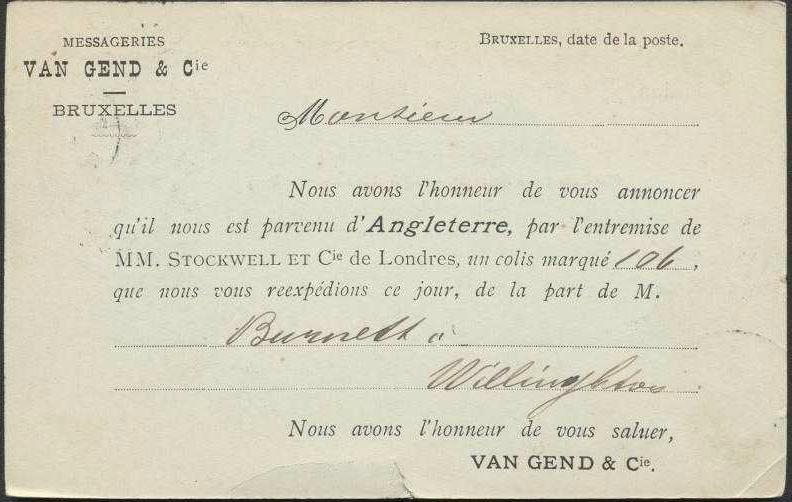 MESSAGERIES
VAN GEND & Cie
BRUXELLES
BRUXELLES, date de la poste.
Monsieur
Nous avons l'honneur de vous annoncer
qu'il nous est parvenu d'Angleterre, par l'entremise de
MM. STOCKWELL ET Cie de Londres, un colis marqué 106,
que nous vous reexpédions ce jour, de la part de M.
Burnett à
Willington
Nous avons l'honneur de vous saluer,
VAN GEND & Cie.